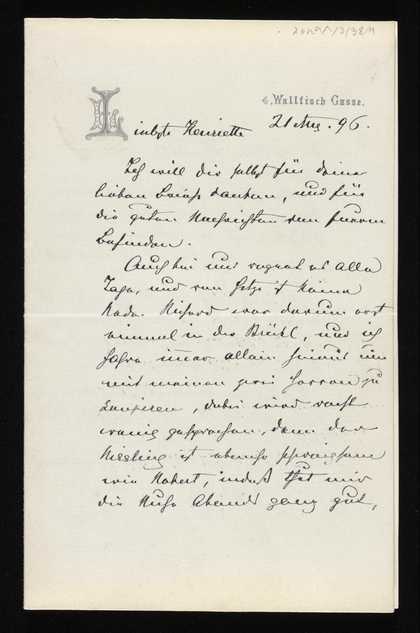 4, Wallfisch Gasse.
21 Aug. 96.
Liebste Henriette
Ich will dir selbst für deine
lieben Briefe danken, und für
die guten Nachrichten von
Befinden.
Auch bei uns regnet es alle
Tage, und von Hitze ist keine
Rede. Richard war darum erst
einmal in der Brühl, und ich
fahre immer allein hinaus um
mit meinen zwei Herren zu
soupiren, dabei wird recht
wenig gesprochen, denn der
ist ebenso schweigsam
wie Robert, indeß thut mir
die Ruhe Abends ganz gut,